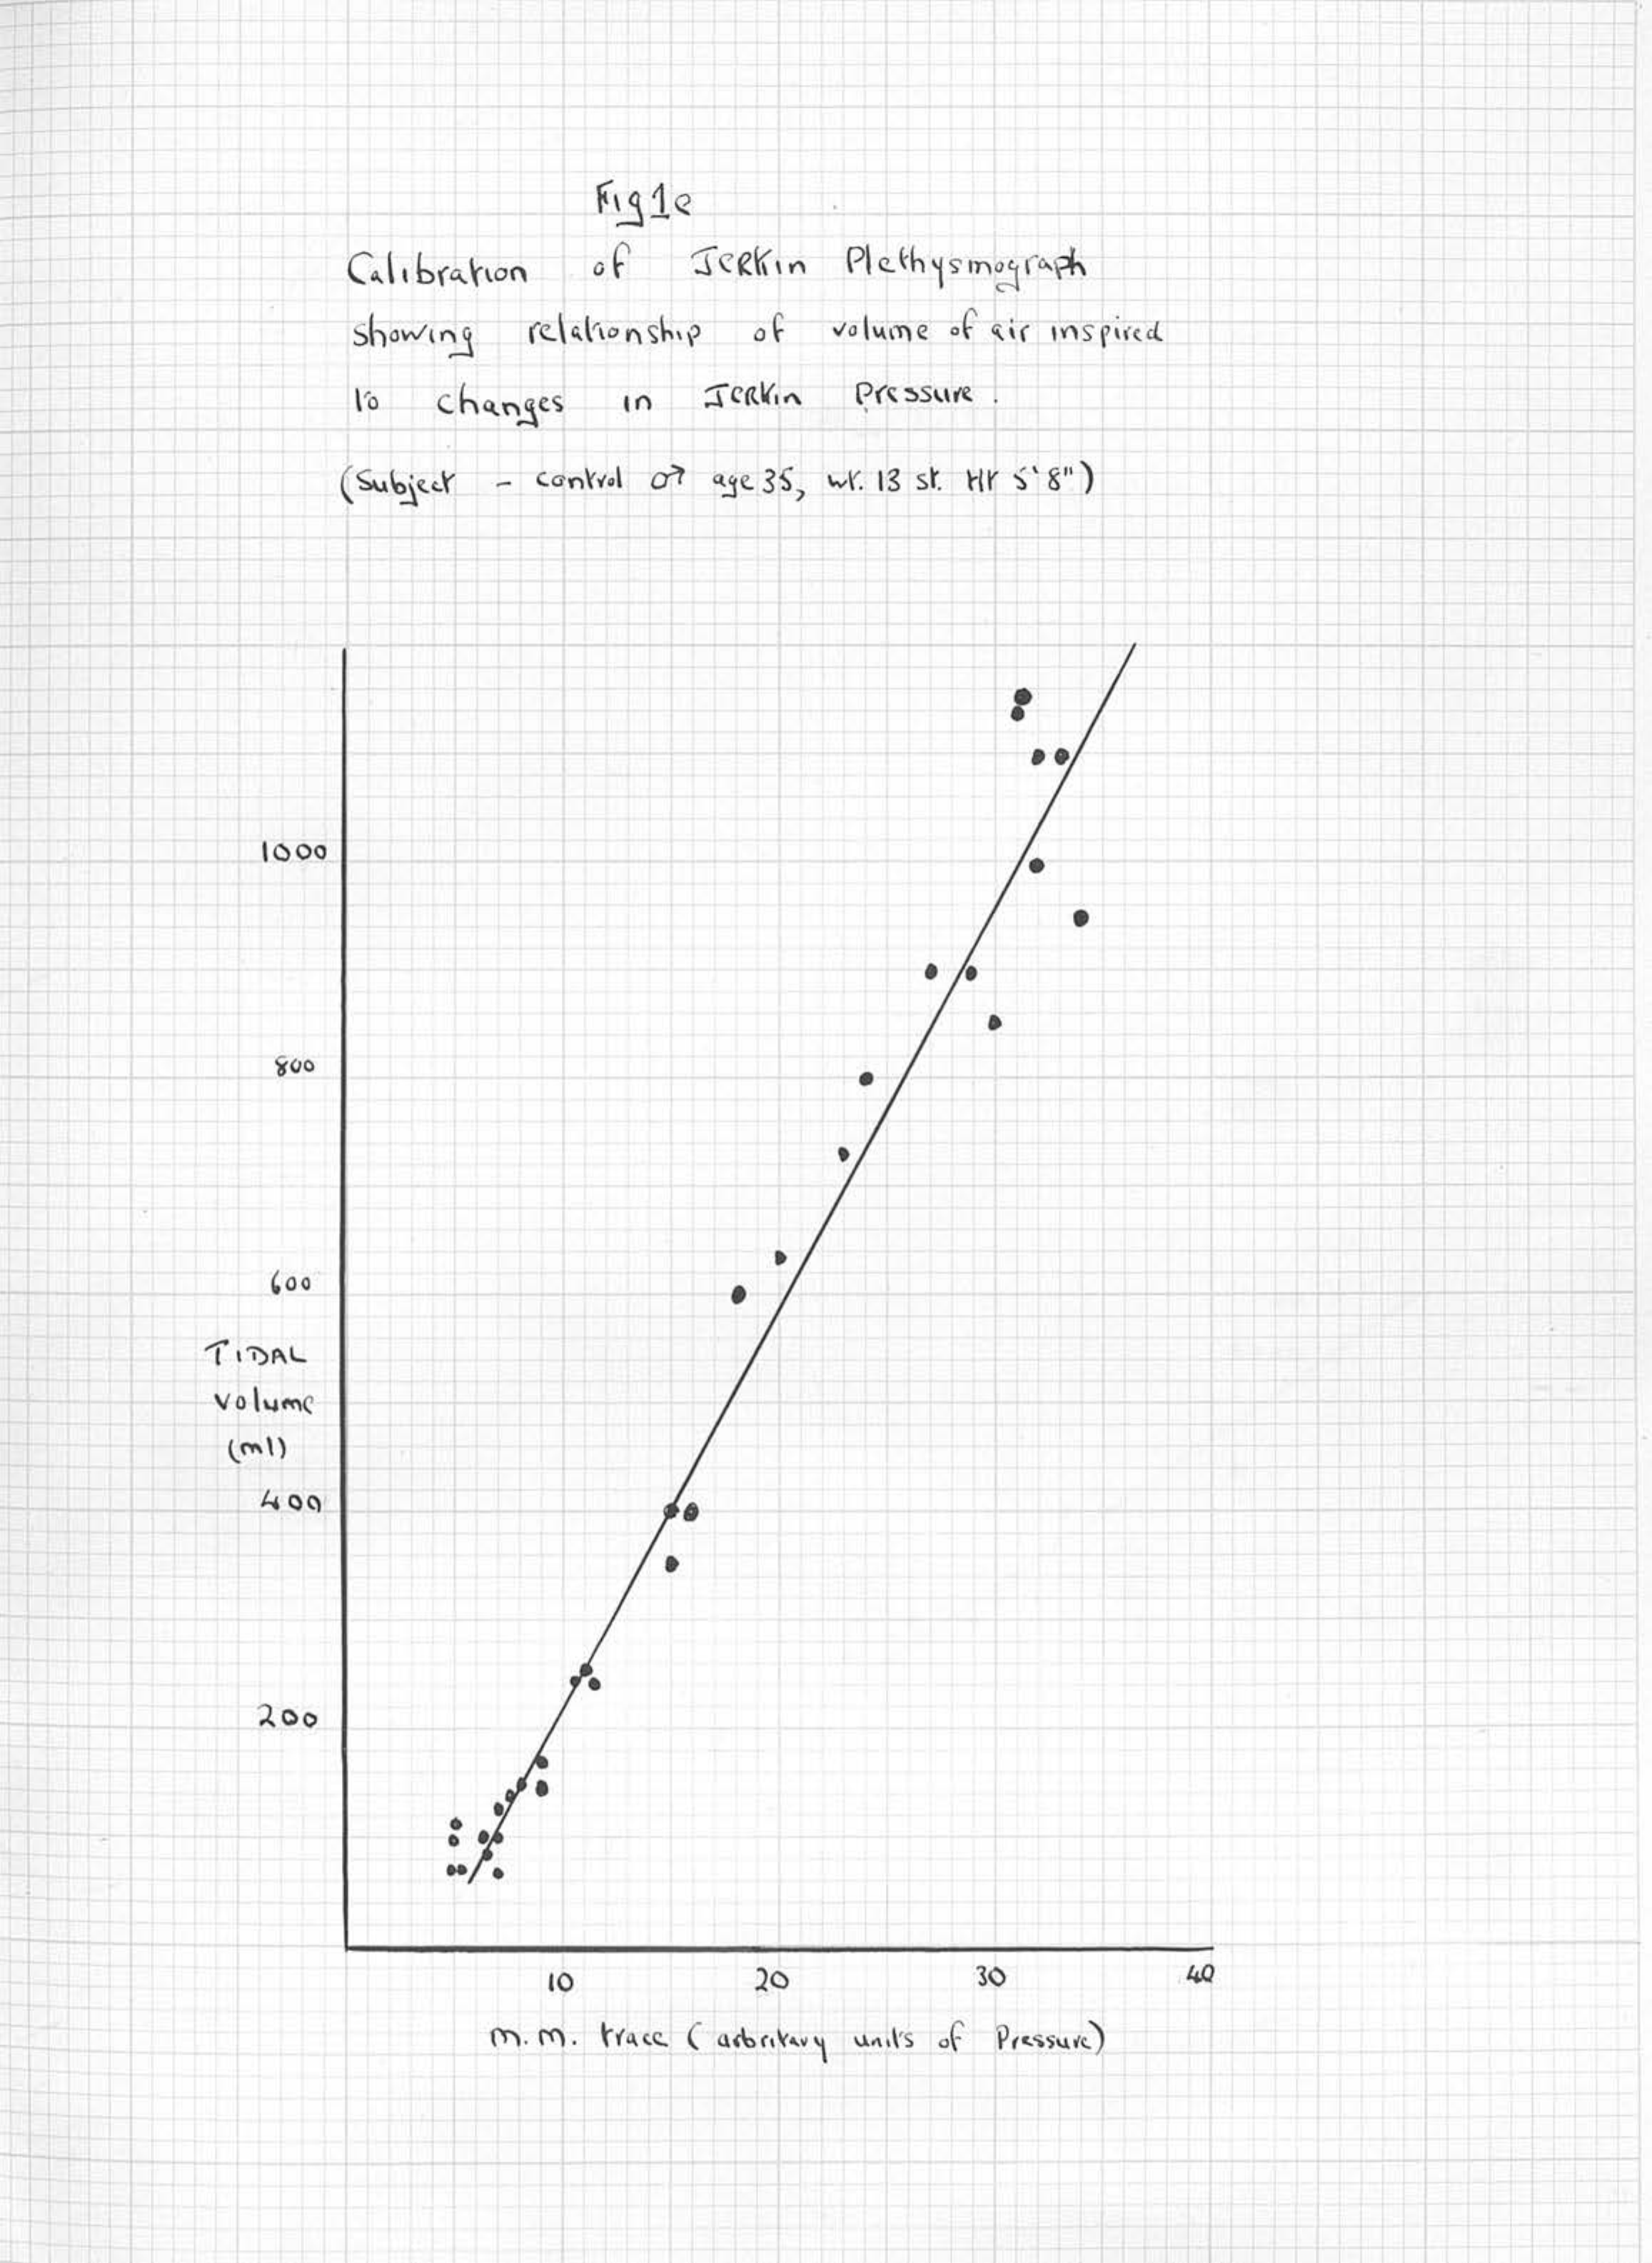 Fig 1e
Calibration of Jerkin Plethysmograph
showing relationship of volume of air inspired
to changes in Jerkin Pressure.
(Subject - control ♂ age 35, wt. 13 st. Ht 5'8")
1000
800
600
TIDAL
volume
(ml)
400
200
10 20 30 40
m.m. trace (arbritary units of Pressure)